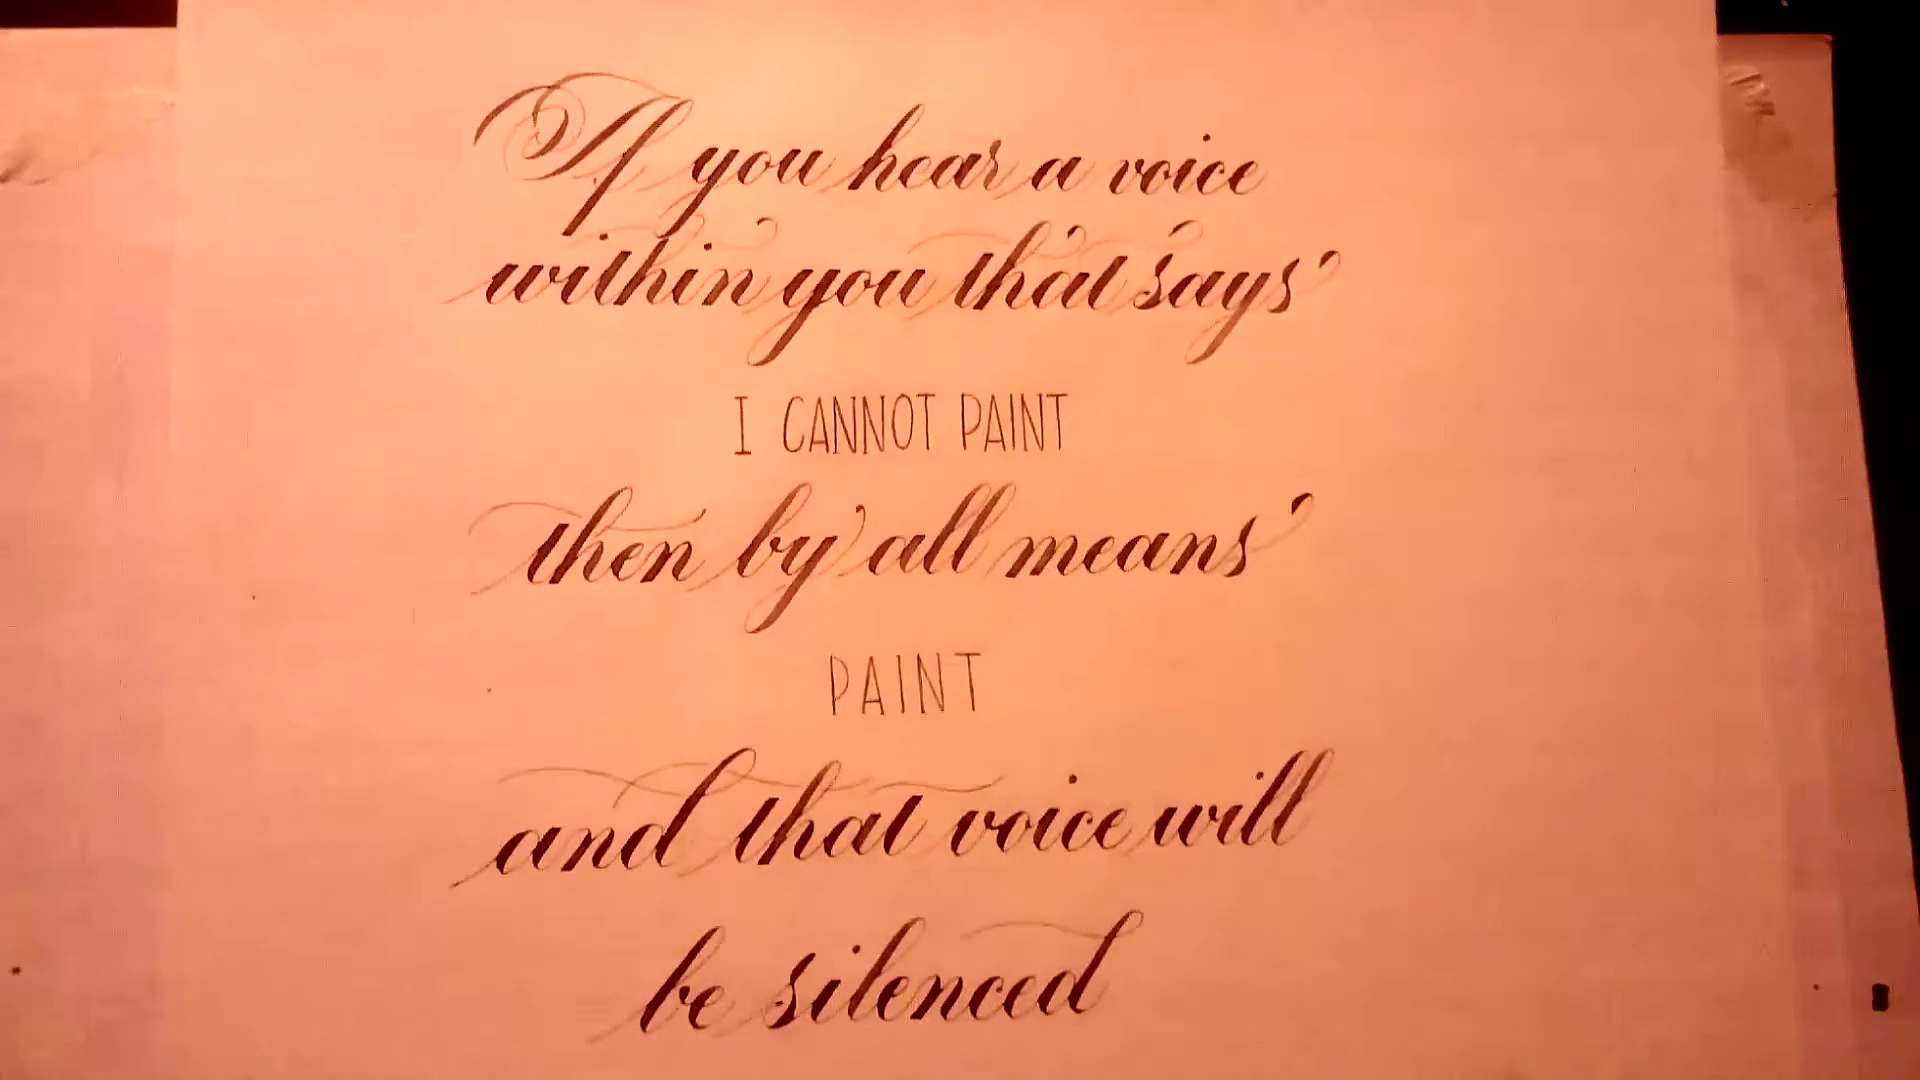 If you hear a voice
within you that says
I CANNOT PAINT
then by all means
PAINT
and that voice will
be silenced